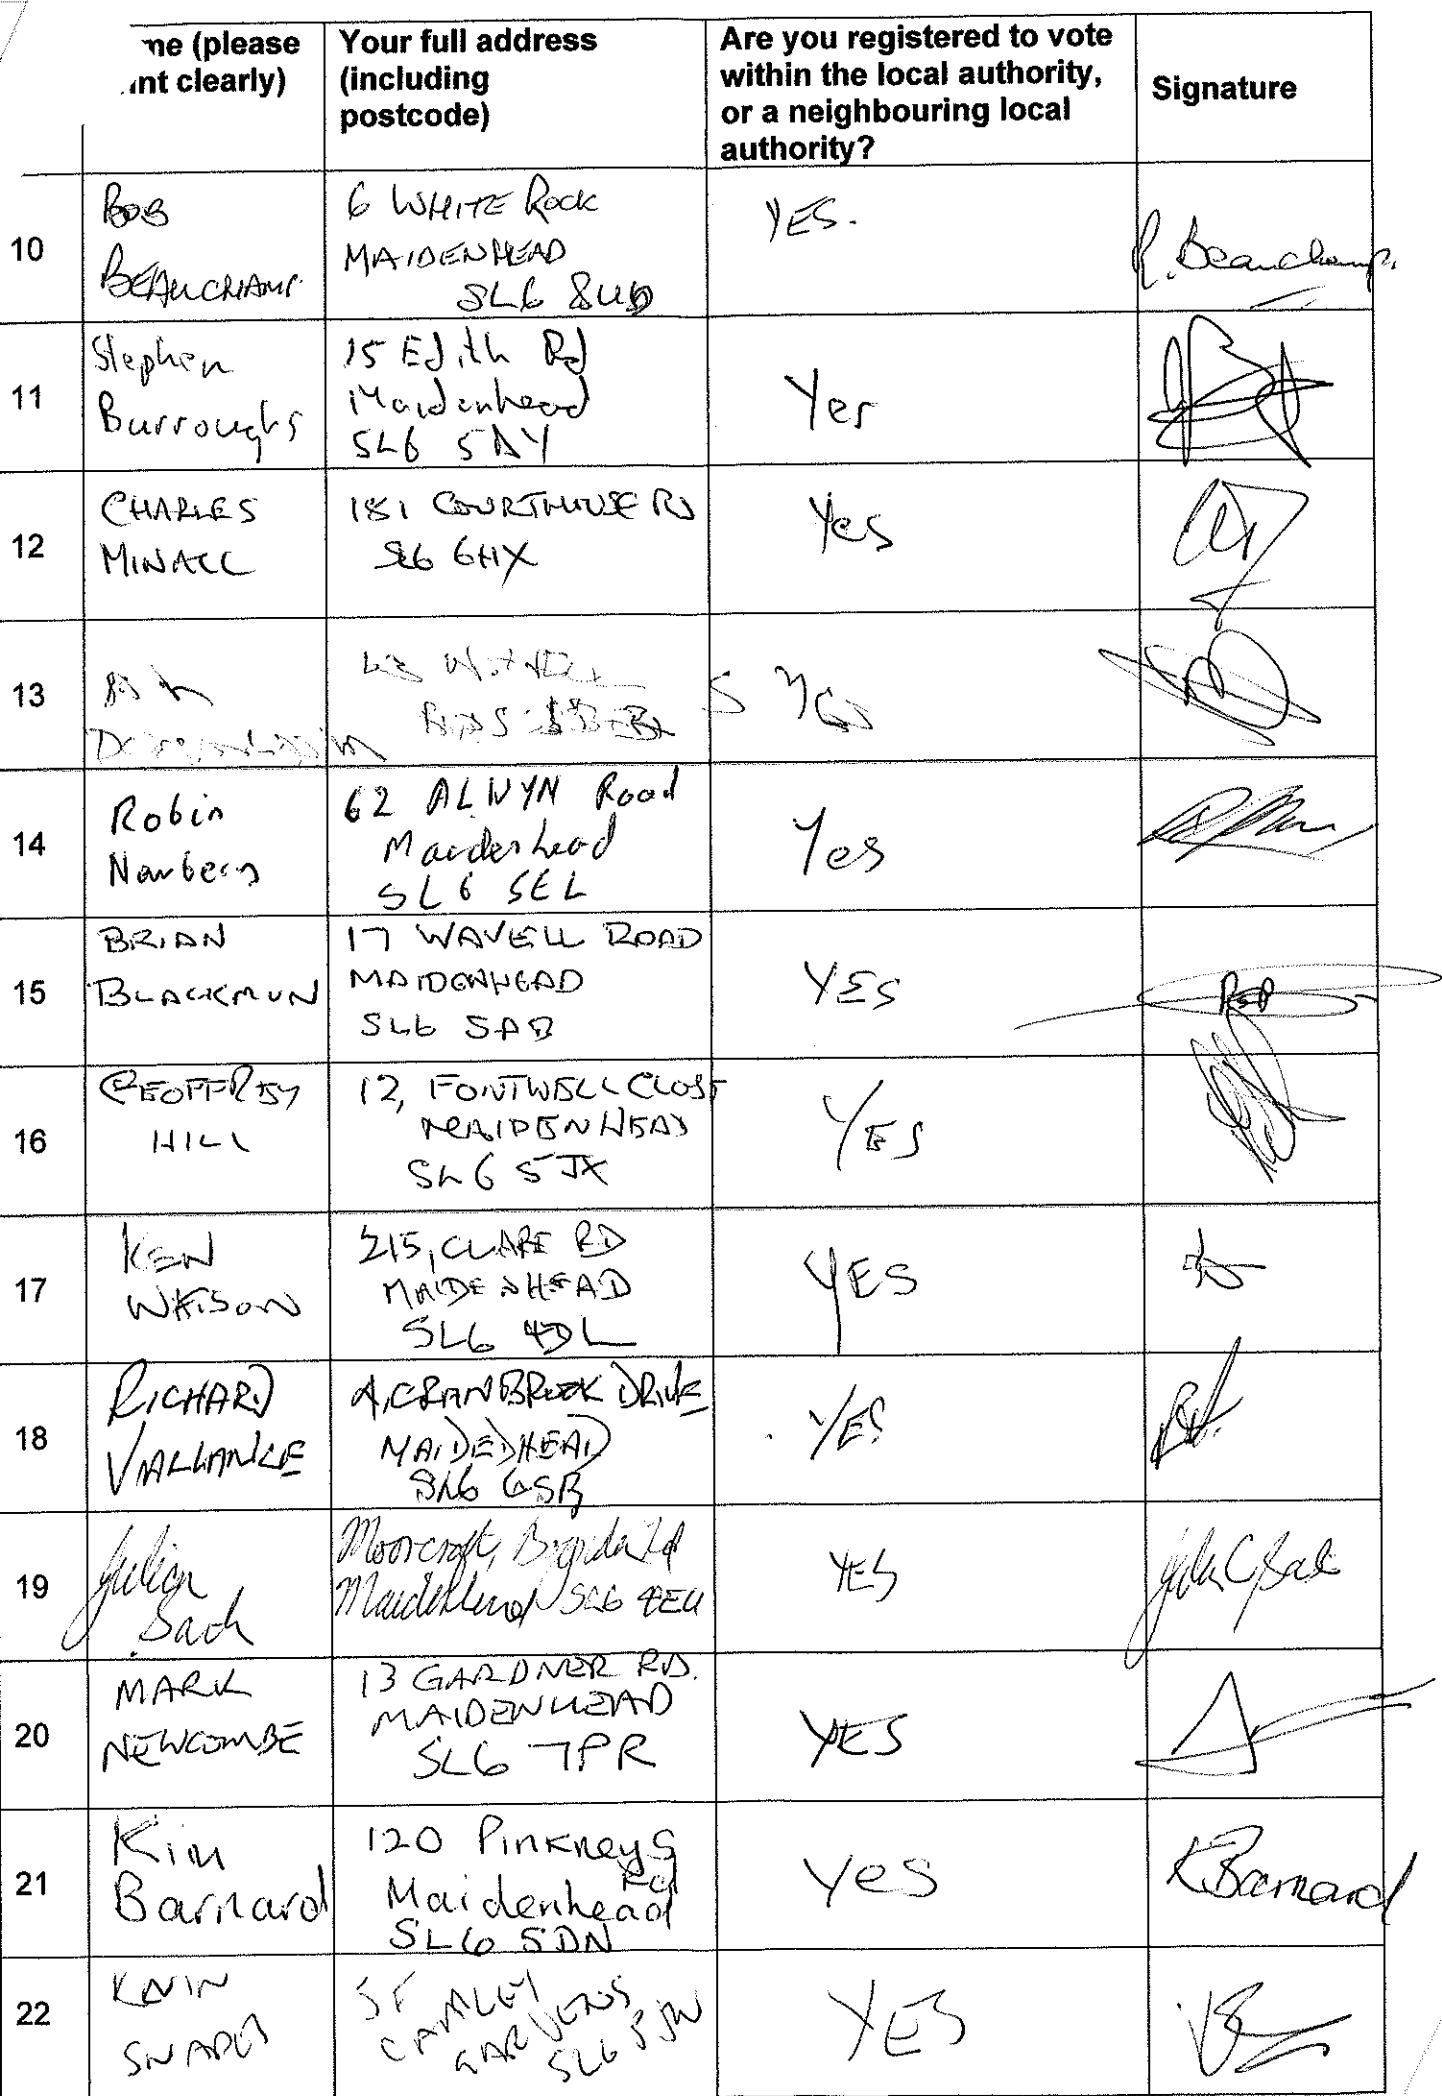 me (please
int clearly)
Your full address
(including
postcode)
Are you registered to vote
within the local authority,
or a neighbouring local
authority?
Signature
10
BOB
BEAUCHAMP.
6 WHITE ROCK
MAIDENHEAD
SL6 8UD
YES.
R. Beauchamp.
11
Stephen
Burroughs
15 Edith Rd
Maidenhead
SL6 5DY
Yes
12
CHARLES
181 COURTHOUSE RD
SL6 6HX
Yes
13
Yes
14
Robin
62 ALWYN Road
Maidenhead
SL6 5EL
Yes
15
BRIAN
17 WAVELL ROAD
MAIDENHEAD
SL6 5AB
YES
16
GEOFFREY
HILL
12, FONTWELL CLOSE
MAIDENHEAD
SL6 5JX
YES
17
KEN
215, CLARE RD
MAIDENHEAD
SL6 4DL
YES
18
RICHARD
VALLANCE
4, CRANBROOK DRIVE
MAIDEDHEAD
SL6 6SB
YES
19
Julian
Moorcroft,
Maidenhead SL6
YES
20
MARK
NEWCOMBE
13 GARDNER RD.
MAIDENHEAD
SL6 7PR
YES
21
Kim
Barnard
120 Pinkneys
Rd
Maidenhead
SL6 5DN
Yes
K Barnard
22
GARDENS
YES